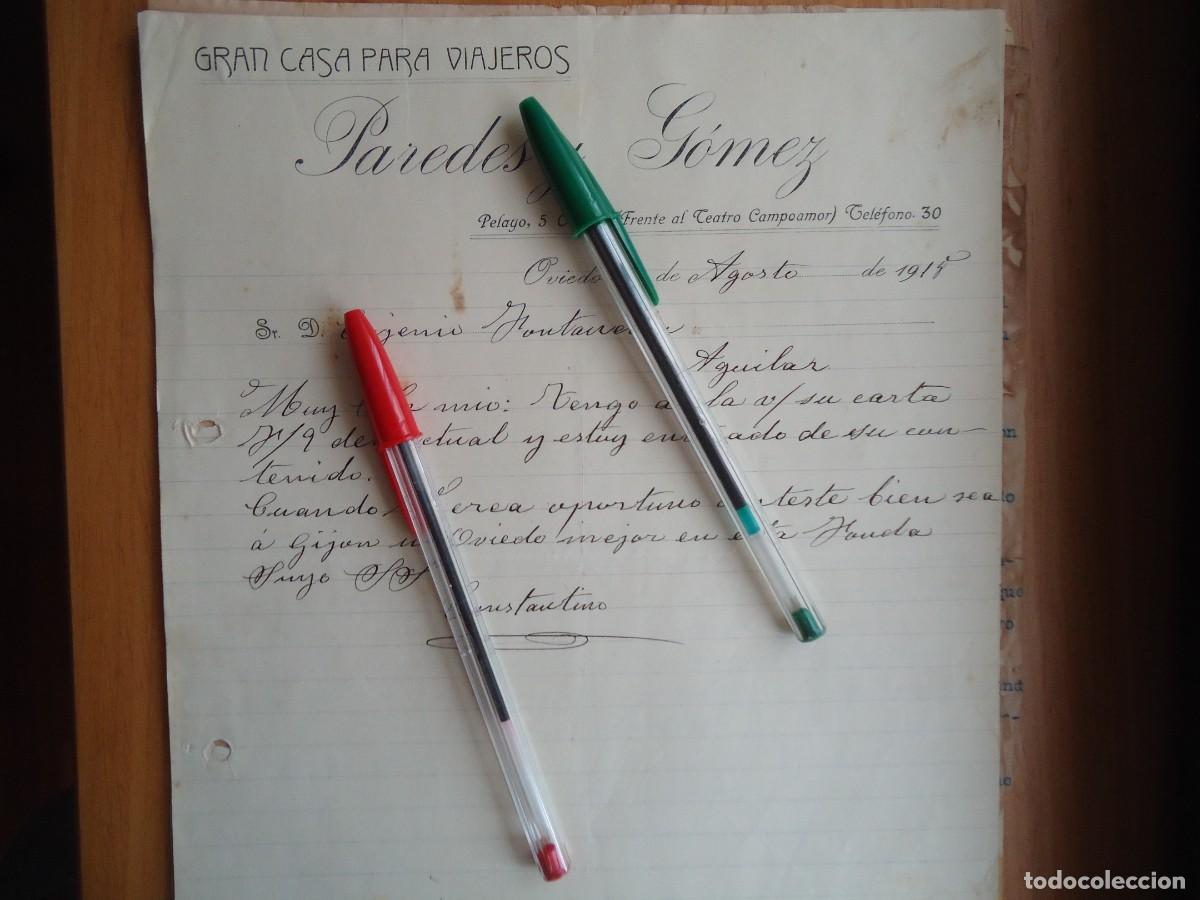 GRAN CASA PARA VIAJEROS
Paredes y Gómez
Pelayo, 5 (Frente al Teatro Campoamor) Teléfono. 30
Oviedo de Agosto de 191
Sr. D. Eugenio
Aguilar
Muy mio: Tengo a la v/ su carta
actual y estoy de su con-
tenido.
Cuando crea oportuno bien sea
á Gijon u Oviedo mejor en esta Fonda
Suyo SS
Constantino
todocoleccion